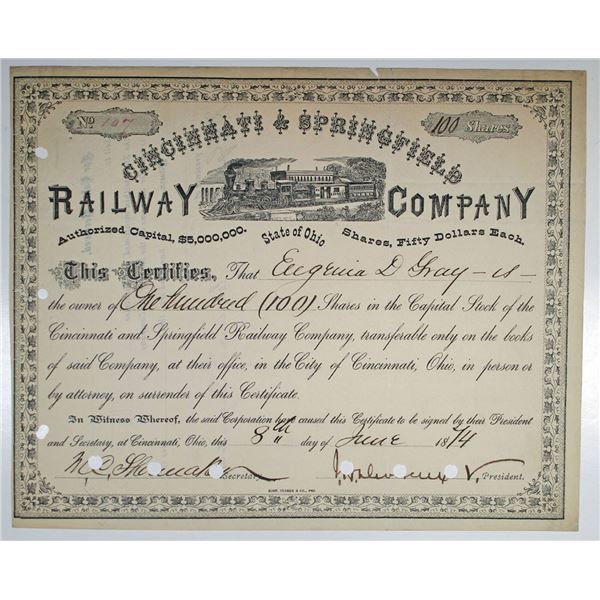 No 107
100 Shares
CINCINNATI & SPRINGFIELD
RAILWAY COMPANY
Authorized Capital, $5,000,000. State of Ohio Shares, Fifty Dollars Each.
This Certifies, That Eugenia D Gray - is -
the owner of One hundred (100) Shares in the Capital Stock of the
Cincinnati and Springfield Railway Company, transferable only on the books
of said Company, at their office, in the City of Cincinnati, Ohio, in person or
by attorney, on surrender of this Certificate.
In Witness Whereof, the said Corporation have caused this Certificate to be signed by their President
and Secretary, at Cincinnati, Ohio, this 8th day of June 1874
Secretary. V. President.